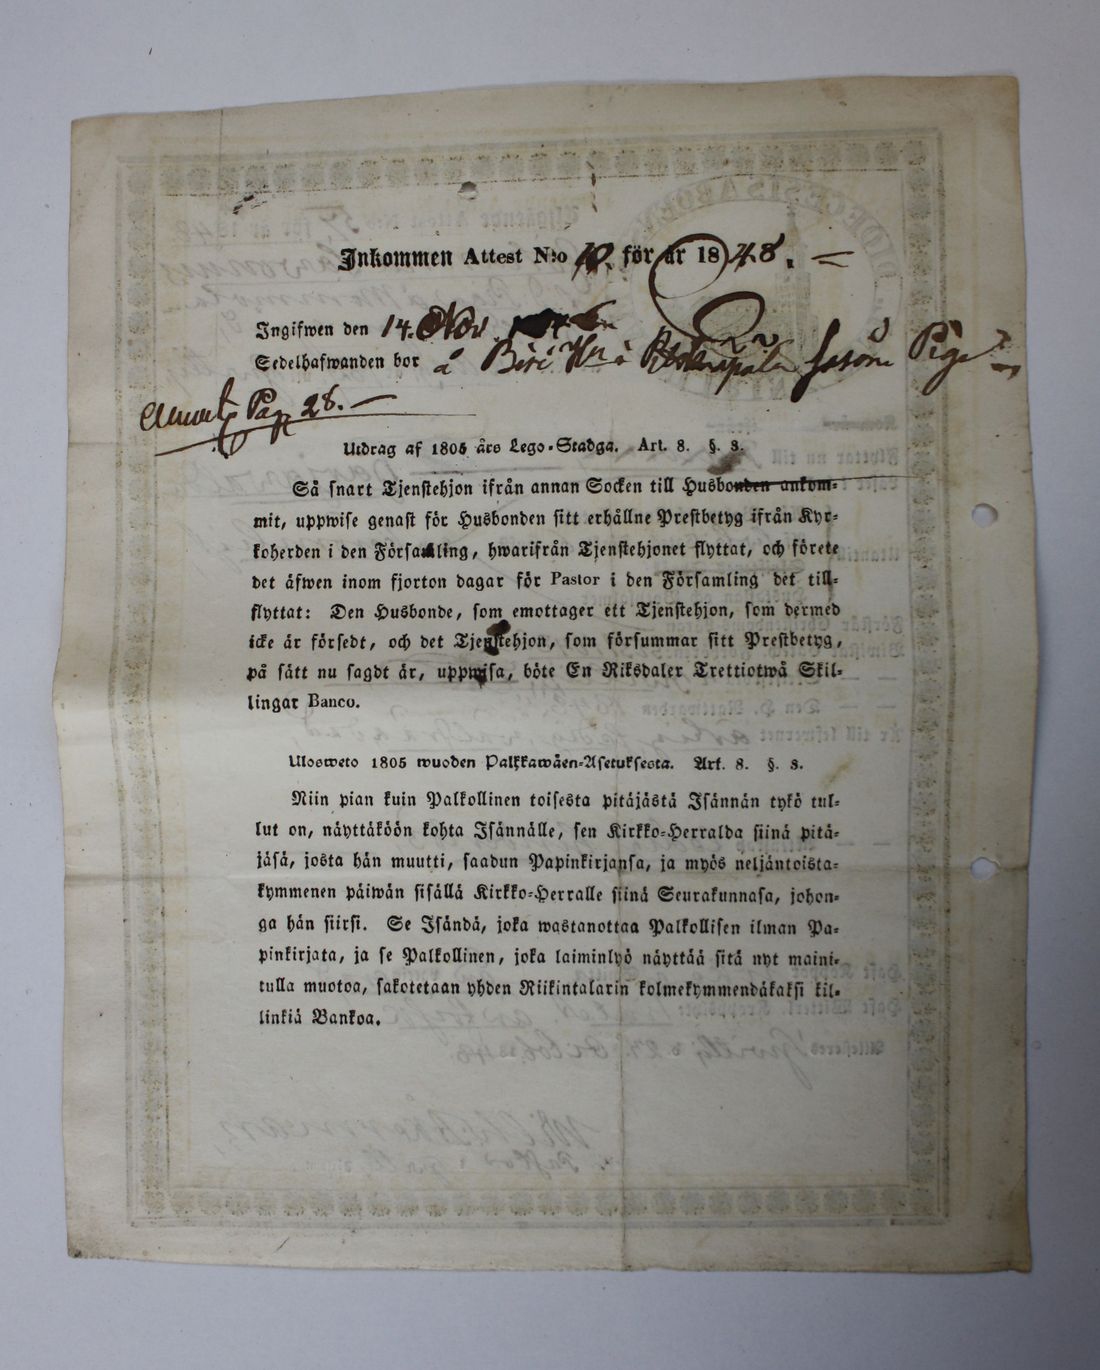 Inkommen Attest N:o 10. för år 1848.
Ingifwen den 14. Nov.
Sedelhafwanden bor å såsom Piga
Pag 28.
Utdrag af 1805 års Lego-Stadga. Art. 8. §. 3.
Så snart Tjenstehjon ifrån annan Socken till Husbonden ankom-
mit, uppwise genast för Husbonden sitt erhållne Prestbetyg ifrån Kyr-
koherden i den Församling, hwarifrån Tjenstehjonet flyttat, och förete
det äfwen inom fjorton dagar för Pastor i den Församling det till-
flyttat: Den Husbonde, som emottager ett Tjenstehjon, som dermed
icke är försedt, och det Tjenstehjon, som försummar sitt Prestbetyg,
på sätt nu sagdt är, uppwisa, böte En Riksdaler Trettiotwå Skil-
lingar Banco.
Ulosweto 1805 wuoden Palkkawäen-Asetuksesta. Art. 8. §. 3.
Niin pian kuin Palkollinen toisesta pitäjästä Isännän tykö tul-
lut on, näyttäköön kohta Isännälle, sen Kirkko-Herralda siinä pitä-
jäsä, josta hän muutti, saadun Papinkirjansa, ja myös neljäntoista-
kymmenen päiwän sisällä Kirkko-Herralle siinä Seurakunnasa, johon-
ga hän siirsi. Se Isändä, joka wastanottaa Palkollisen ilman Pa-
pinkirjata, ja se Palkollinen, joka laiminlyö näyttää sitä nyt maini-
tulla muotoa, sakotetaan yhden Riikintalarin kolmekymmendäkaksi kil-
linkiä Bankoa.